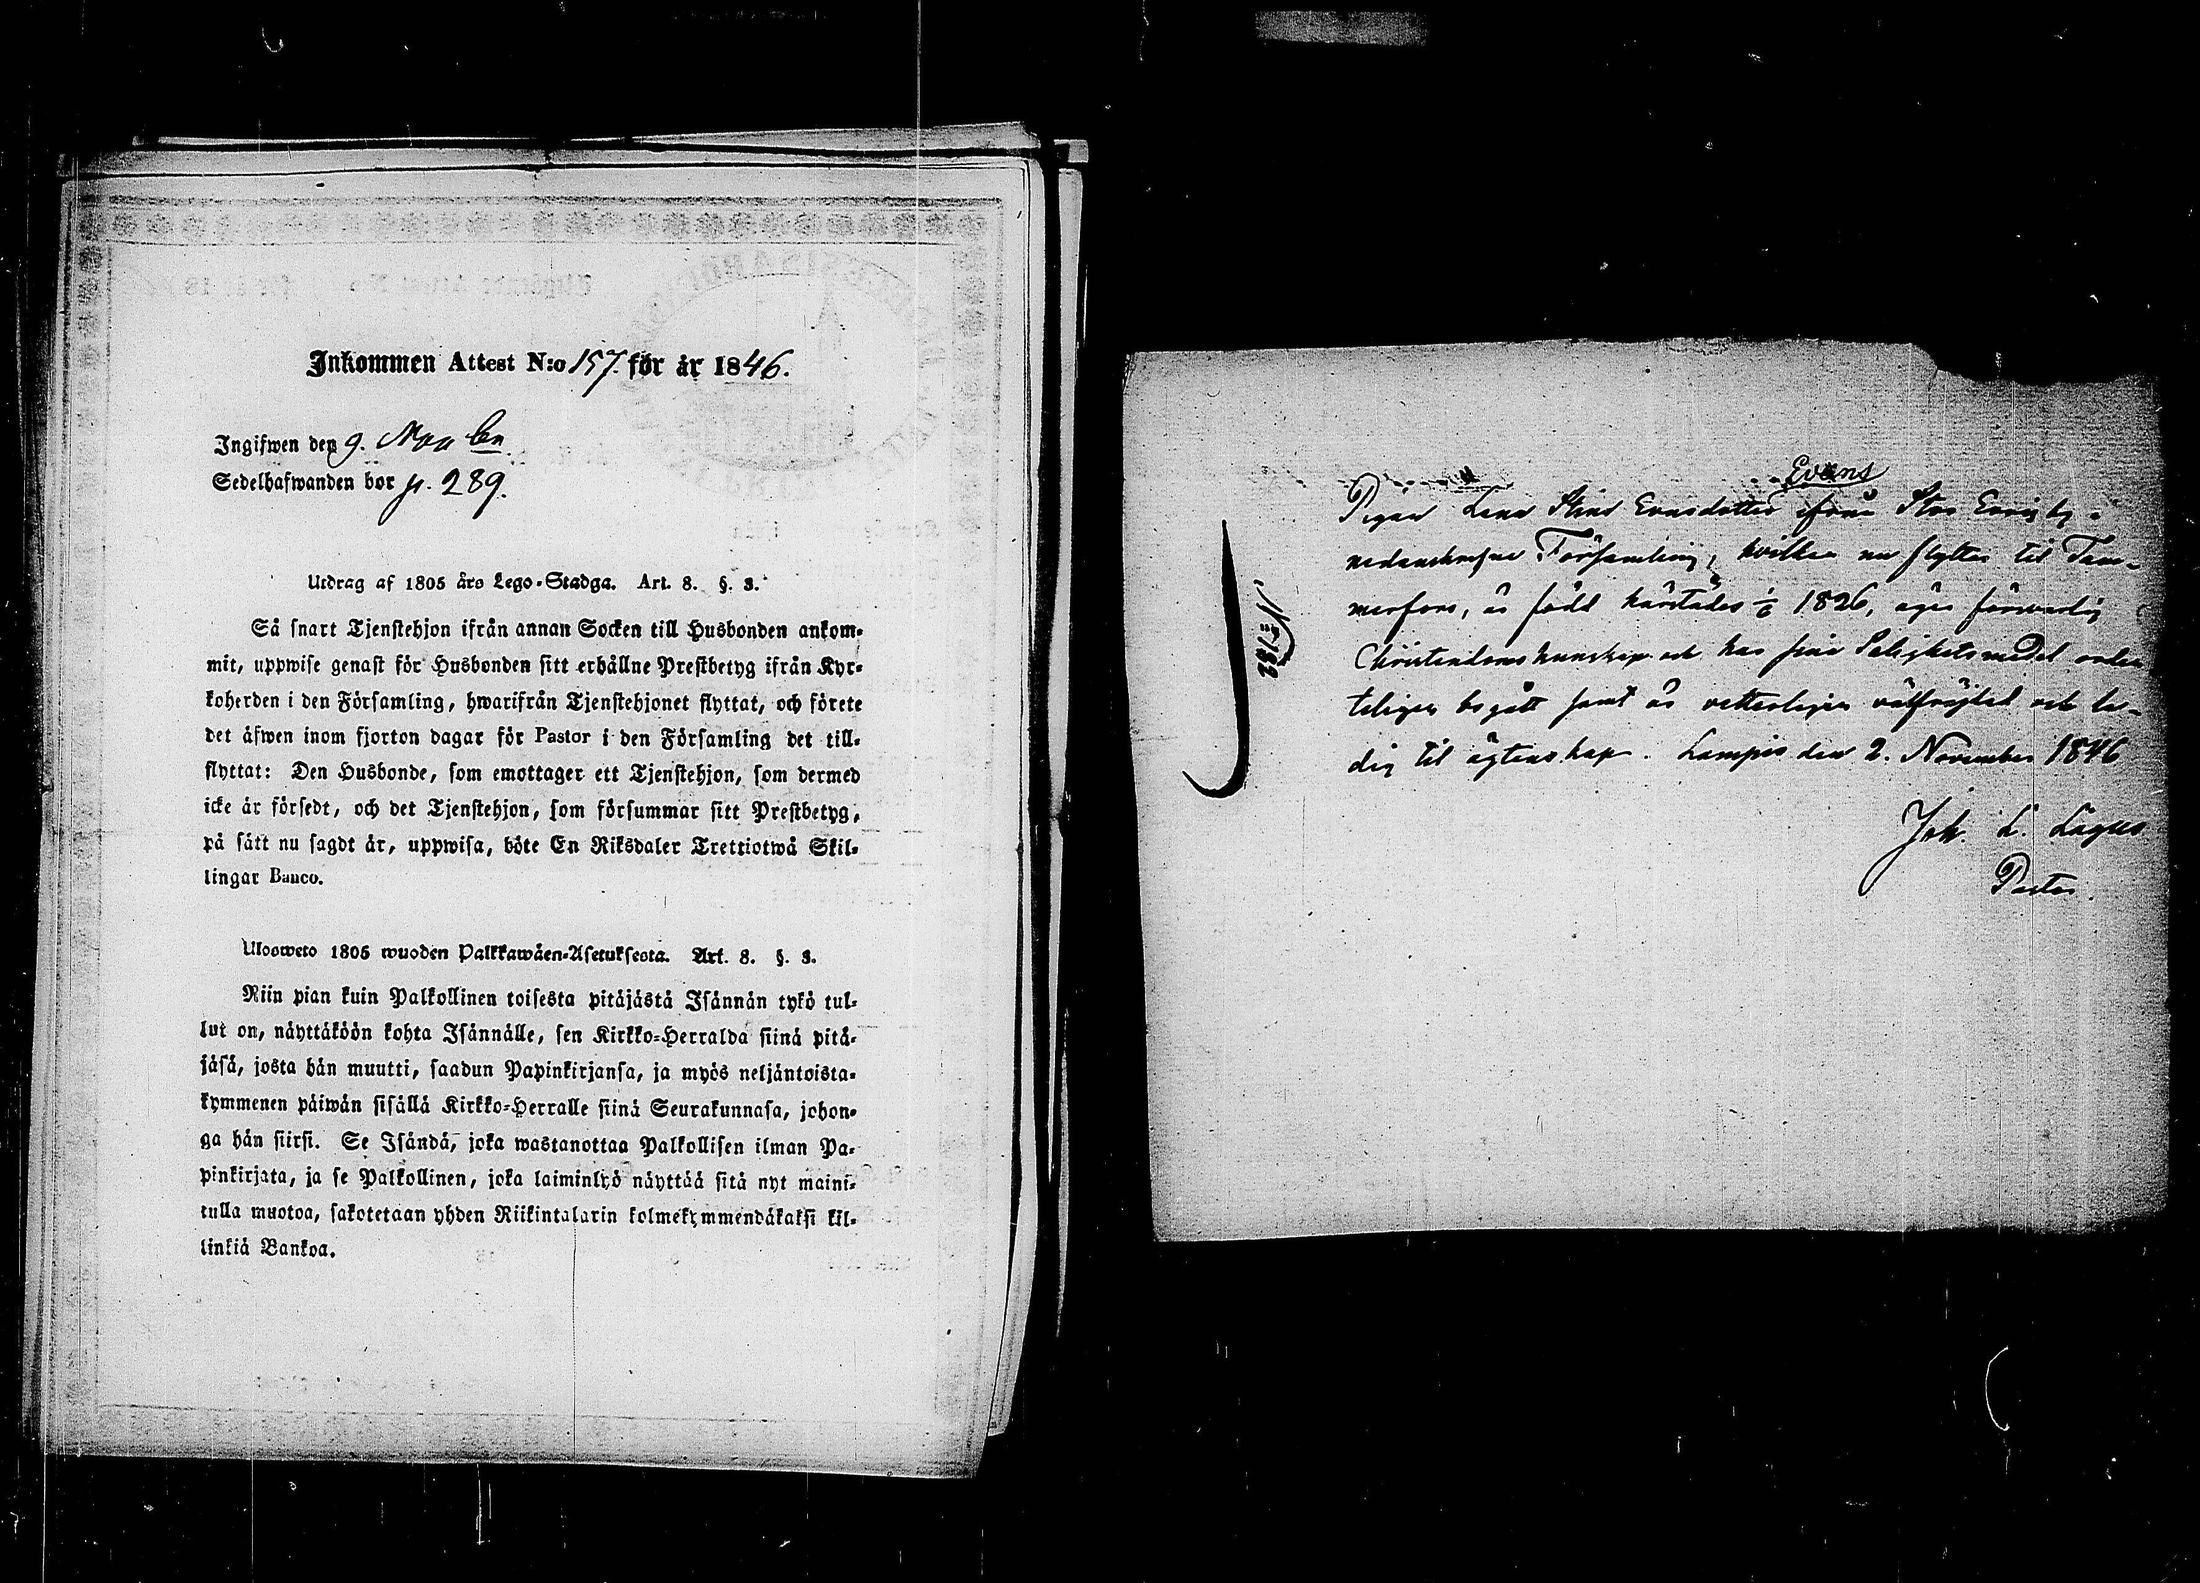 Inkommen Attest N:o 157. för år 1846.
Ingifwen den 9.
Sedelhafwanden bor p. 289.
Utdrag af 1805 års Lego-Stadga. Art. 8. §. 3.
Så snart Tjenstehjon ifrån annan Socken till Husbonden ankom-
mit, uppwise genast för Husbonden sitt erhållne Prestbetyg ifrån Kyr-
koherden i den Församling, hwarifrån Tjenstehjonet flyttat, och förete
det äfwen inom fjorton dagar för Pastor i den Församling det till-
flyttat: Den Husbonde, som emottager ett Tjenstehjon, som dermed
icke är försedt, och det Tjenstehjon, som försummar sitt Prestbetyg,
på sätt nu sagdt är, uppwisa, böte En Riksdaler Trettiotwå Skil-
lingar Banco.
Ulosweto 1805 wuoden Palkkawäen-Asetuksesta. Art. 8. §. 3.
Niin pian kuin Palkollinen toisesta pitäjästä Isännän tykö tul-
lut on, näyttäköön kohta Isännälle, sen Kirkko-Herralda siinä pitä-
jäsä, josta hän muutti, saadun Papinkirjansa, ja myös neljäntoista-
kymmenen päiwän sisällä Kirkko-Herralle siinä Seurakunnasa, johon-
ga hän siirsi. Se Isändä, joka wastanottaa Palkollisen ilman Pa-
pinkirjata, ja se Palkollinen, joka laiminlyö näyttää sitä nyt maini-
tulla muotoa, sakotetaan yhden Riikintalarin kolmekymmendäkaksi kil-
linkiä Bankoa.
Evans
Pigan Lena Stina Evasdotter ifrån Stor Evois by i
nedanskrefne Församling, hvilken nu flyttar til Tam-
merfors, är född härstädes 1/6 1826, äger försvarlig
Christendomskunskap och har sine Salighetsmedel orden-
teligen begått samt är vetterligen välfrejdad och le-
dig til ägtenskap. Lampis den 2. November 1846
Joh. L. Lagus
Pastor.